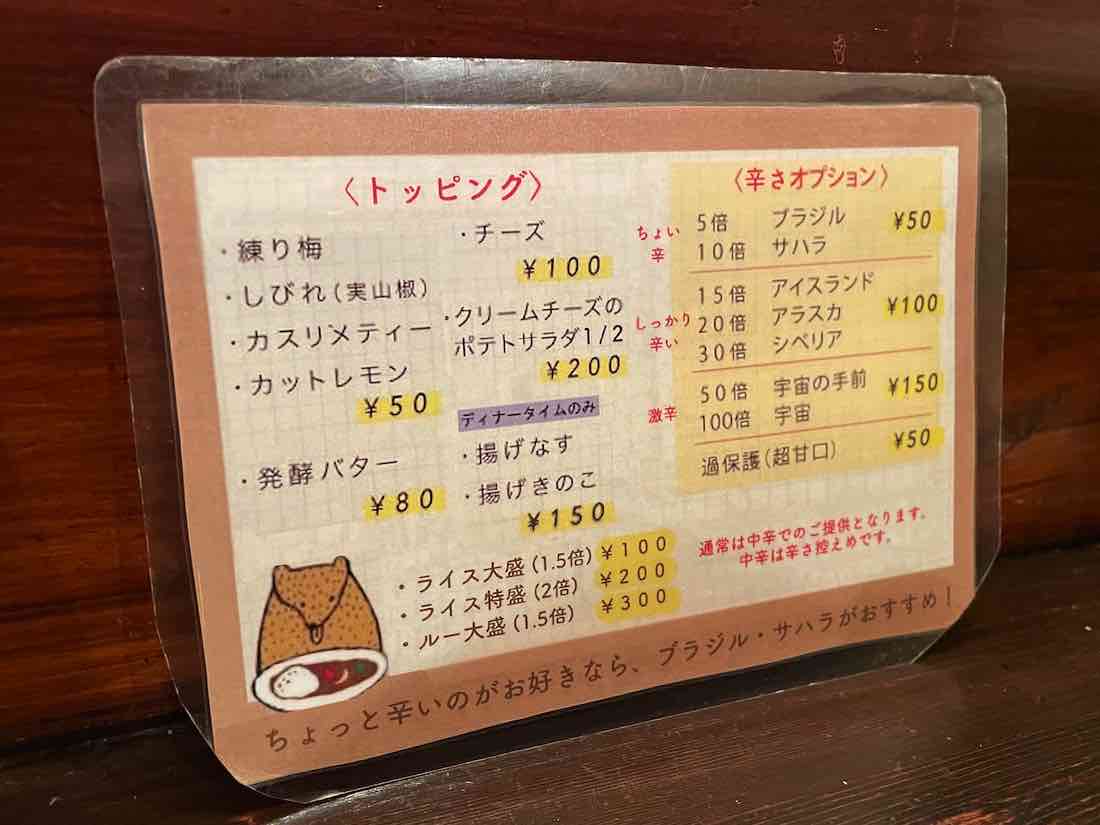 〈トッピング〉
・練り梅
・しびれ(実山椒)
・カスリメティー
・カットレモン
¥50
・発酵バター
¥80
・チーズ
¥100
・クリームチーズの
ポテトサラダ1/2
¥200
ディナータイムのみ
・揚げなす
・揚げきのこ
¥150
・ライス大盛(1.5倍) ¥100
・ライス特盛(2倍) ¥200
・ルー大盛(1.5倍) ¥300
〈辛さオプション〉
ちょい
辛
5倍 ブラジル ¥50
10倍 サハラ
しっかり
辛い
15倍 アイスランド
20倍 アラスカ ¥100
30倍 シベリア
激辛
50倍 宇宙の手前 ¥150
100倍 宇宙
過保護(超甘口) ¥50
通常は中辛でのご提供となります。
中辛は辛さ控えめです。
ちょっと辛いのがお好きなら、ブラジル・サハラがおすすめ!